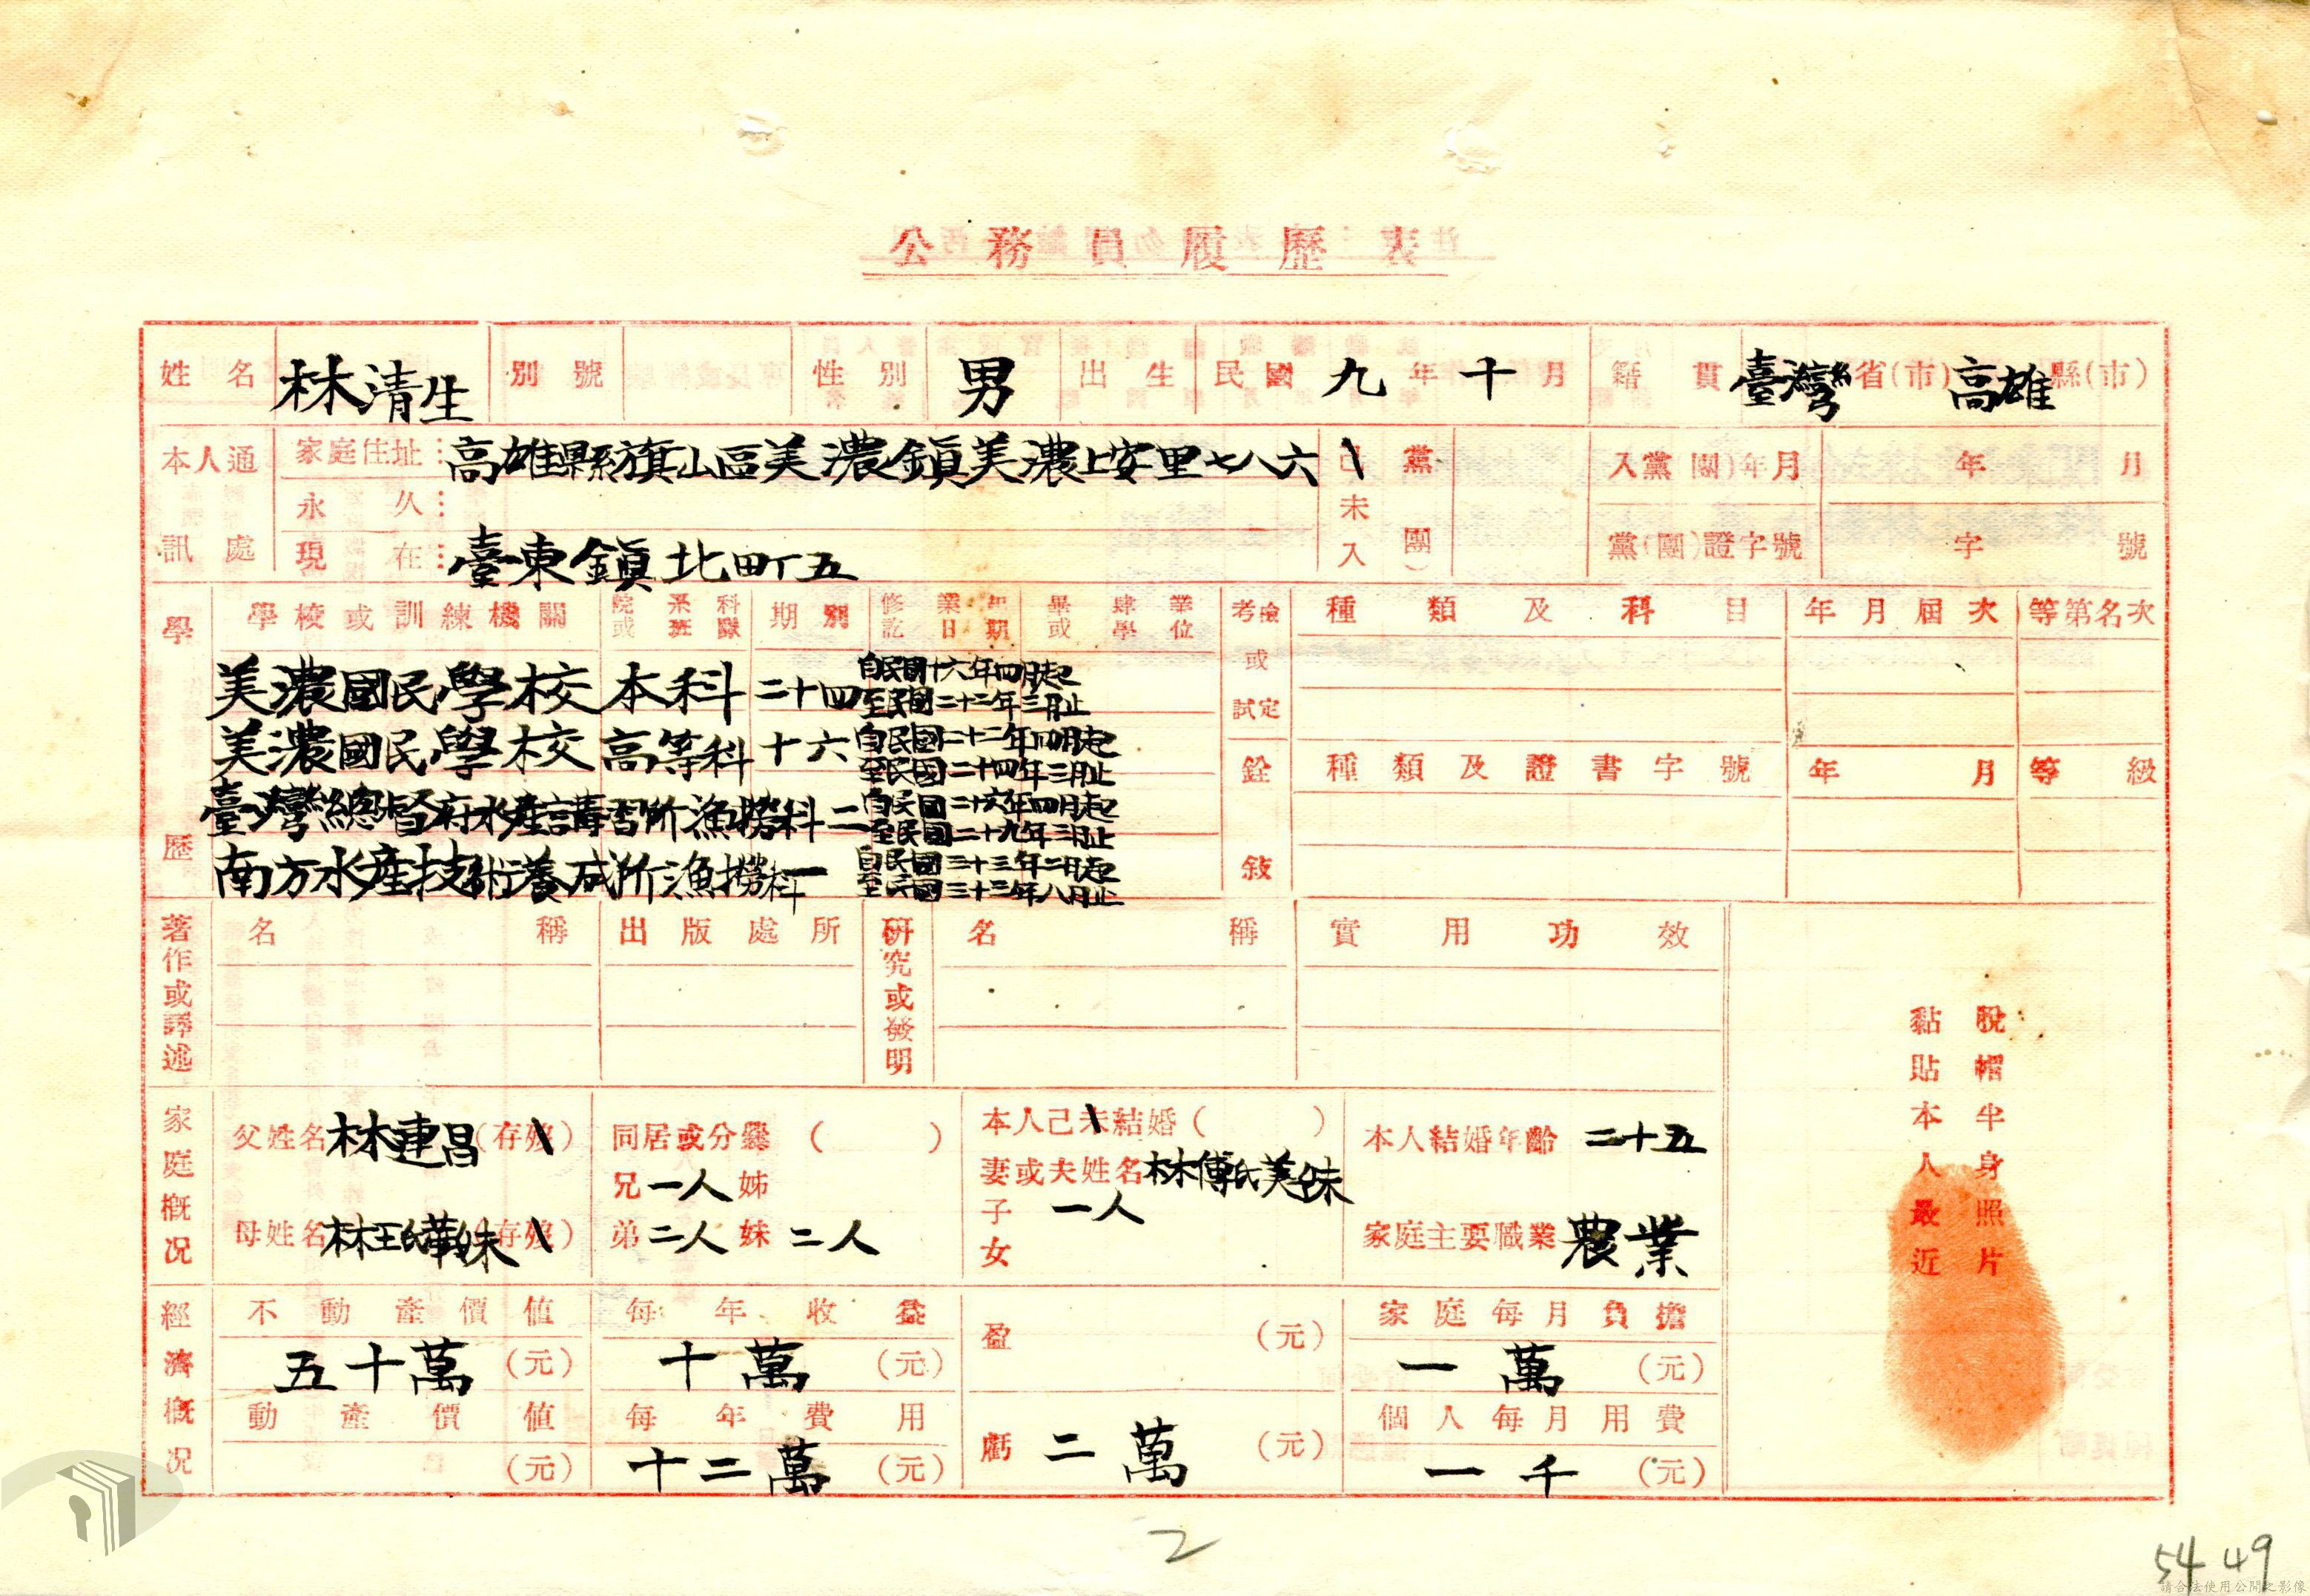 公務員履歷表
姓名 林清生 別號 性別 男 出生 民國 九 年 十 月 籍貫 臺灣 省(市) 高雄 縣(市)
本人通訊處
家庭住址: 高雄縣旗山區美濃鎮美濃上安里七八六
永久:
現在: 臺東鎮北町五
已未入 黨(團) 入黨(團)年月 年 月
黨(團)證字號 字 號
學歷
學校或訓練機關 院或 系班 科隊 期別 修訖 業日 年期 畢或 肄學 業位
美濃國民學校 本科 二十四 自民國十六年四月起
至民國二十二年三月止
美濃國民學校 高等科 十六 自民國二十二年四月起
至民國二十四年三月止
臺灣總督府水產講習所漁撈科 二 自民國二十六年四月起
至民國二十九年三月止
南方水產技術養成所漁撈科 一 自民國三十三年二月起
至民國三十三年八月止
考檢或試定 種類及科目 年月屆次 等第名次
銓敍 種類及證書字號 年 月 等級
著作或譯述 名稱 出版處所
研究或發明 名稱 實用功效
家庭概況
父姓名 林建昌 (存歿) 同居或分爨( )
兄 一人 姊
母姓名 (存歿) 弟 二人 妹 二人
本人已未結婚( ) 本人結婚年齡 二十五
妻或夫姓名 林傅氏美妹
子 一人
女
家庭主要職業 農業
經濟概況
不動產價值 五十萬 (元) 每年收益 十萬 (元)
盈 (元) 家庭每月負擔 一萬 (元)
動產價值 (元) 每年費用 十二萬 (元)
虧 二萬 (元) 個人每月用費 一千 (元)
黏貼本人最近
脫帽半身照片
2
54 49
請合法使用公開之影像